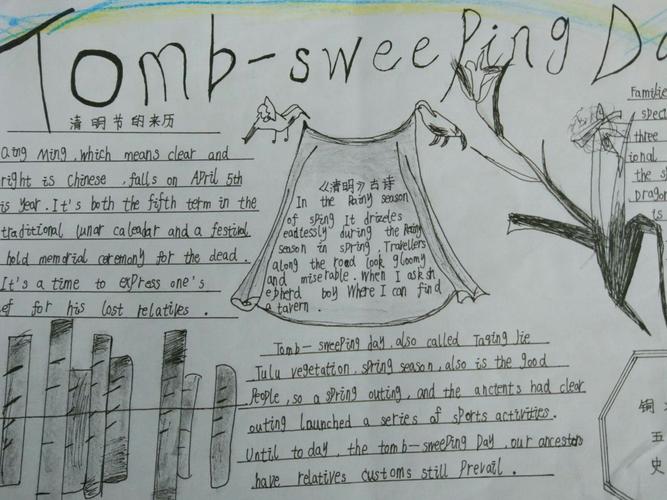 Tomb-sweeping Da
清明节的来历
Qing Ming, which means clear and
right is Chinese, falls on April 5th
is year. It's both the fifth term in the
traditional lunar caleadar and a festival
hold memorial ceremony for the dead.
It's a time to express one's
ef for his lost relatives.
《清明》古诗
In the Rainy season
of sping It drizeles
eadtessly during the Rainy
season in spring. Travellers
along the road look gloomy
and miserable. When I ask sh
epherd boy Where I can find
a tavern.
Tomb-sweeping day, also called Taqing Jie
Tulu vegetation, spring season, also is the good
People, so a spring outing, and the ancients had clear
outing launched a series of sports activities.
Until today, the tomb-sweeping Day, our ancestors
have relatives customs still Prevail.
Familie
spect
three
ional
the s
Dragon
is
铜
五
史